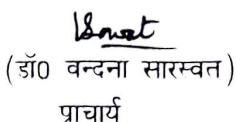 (डॉ0 वन्दना सारस्वत)
प्राचार्य